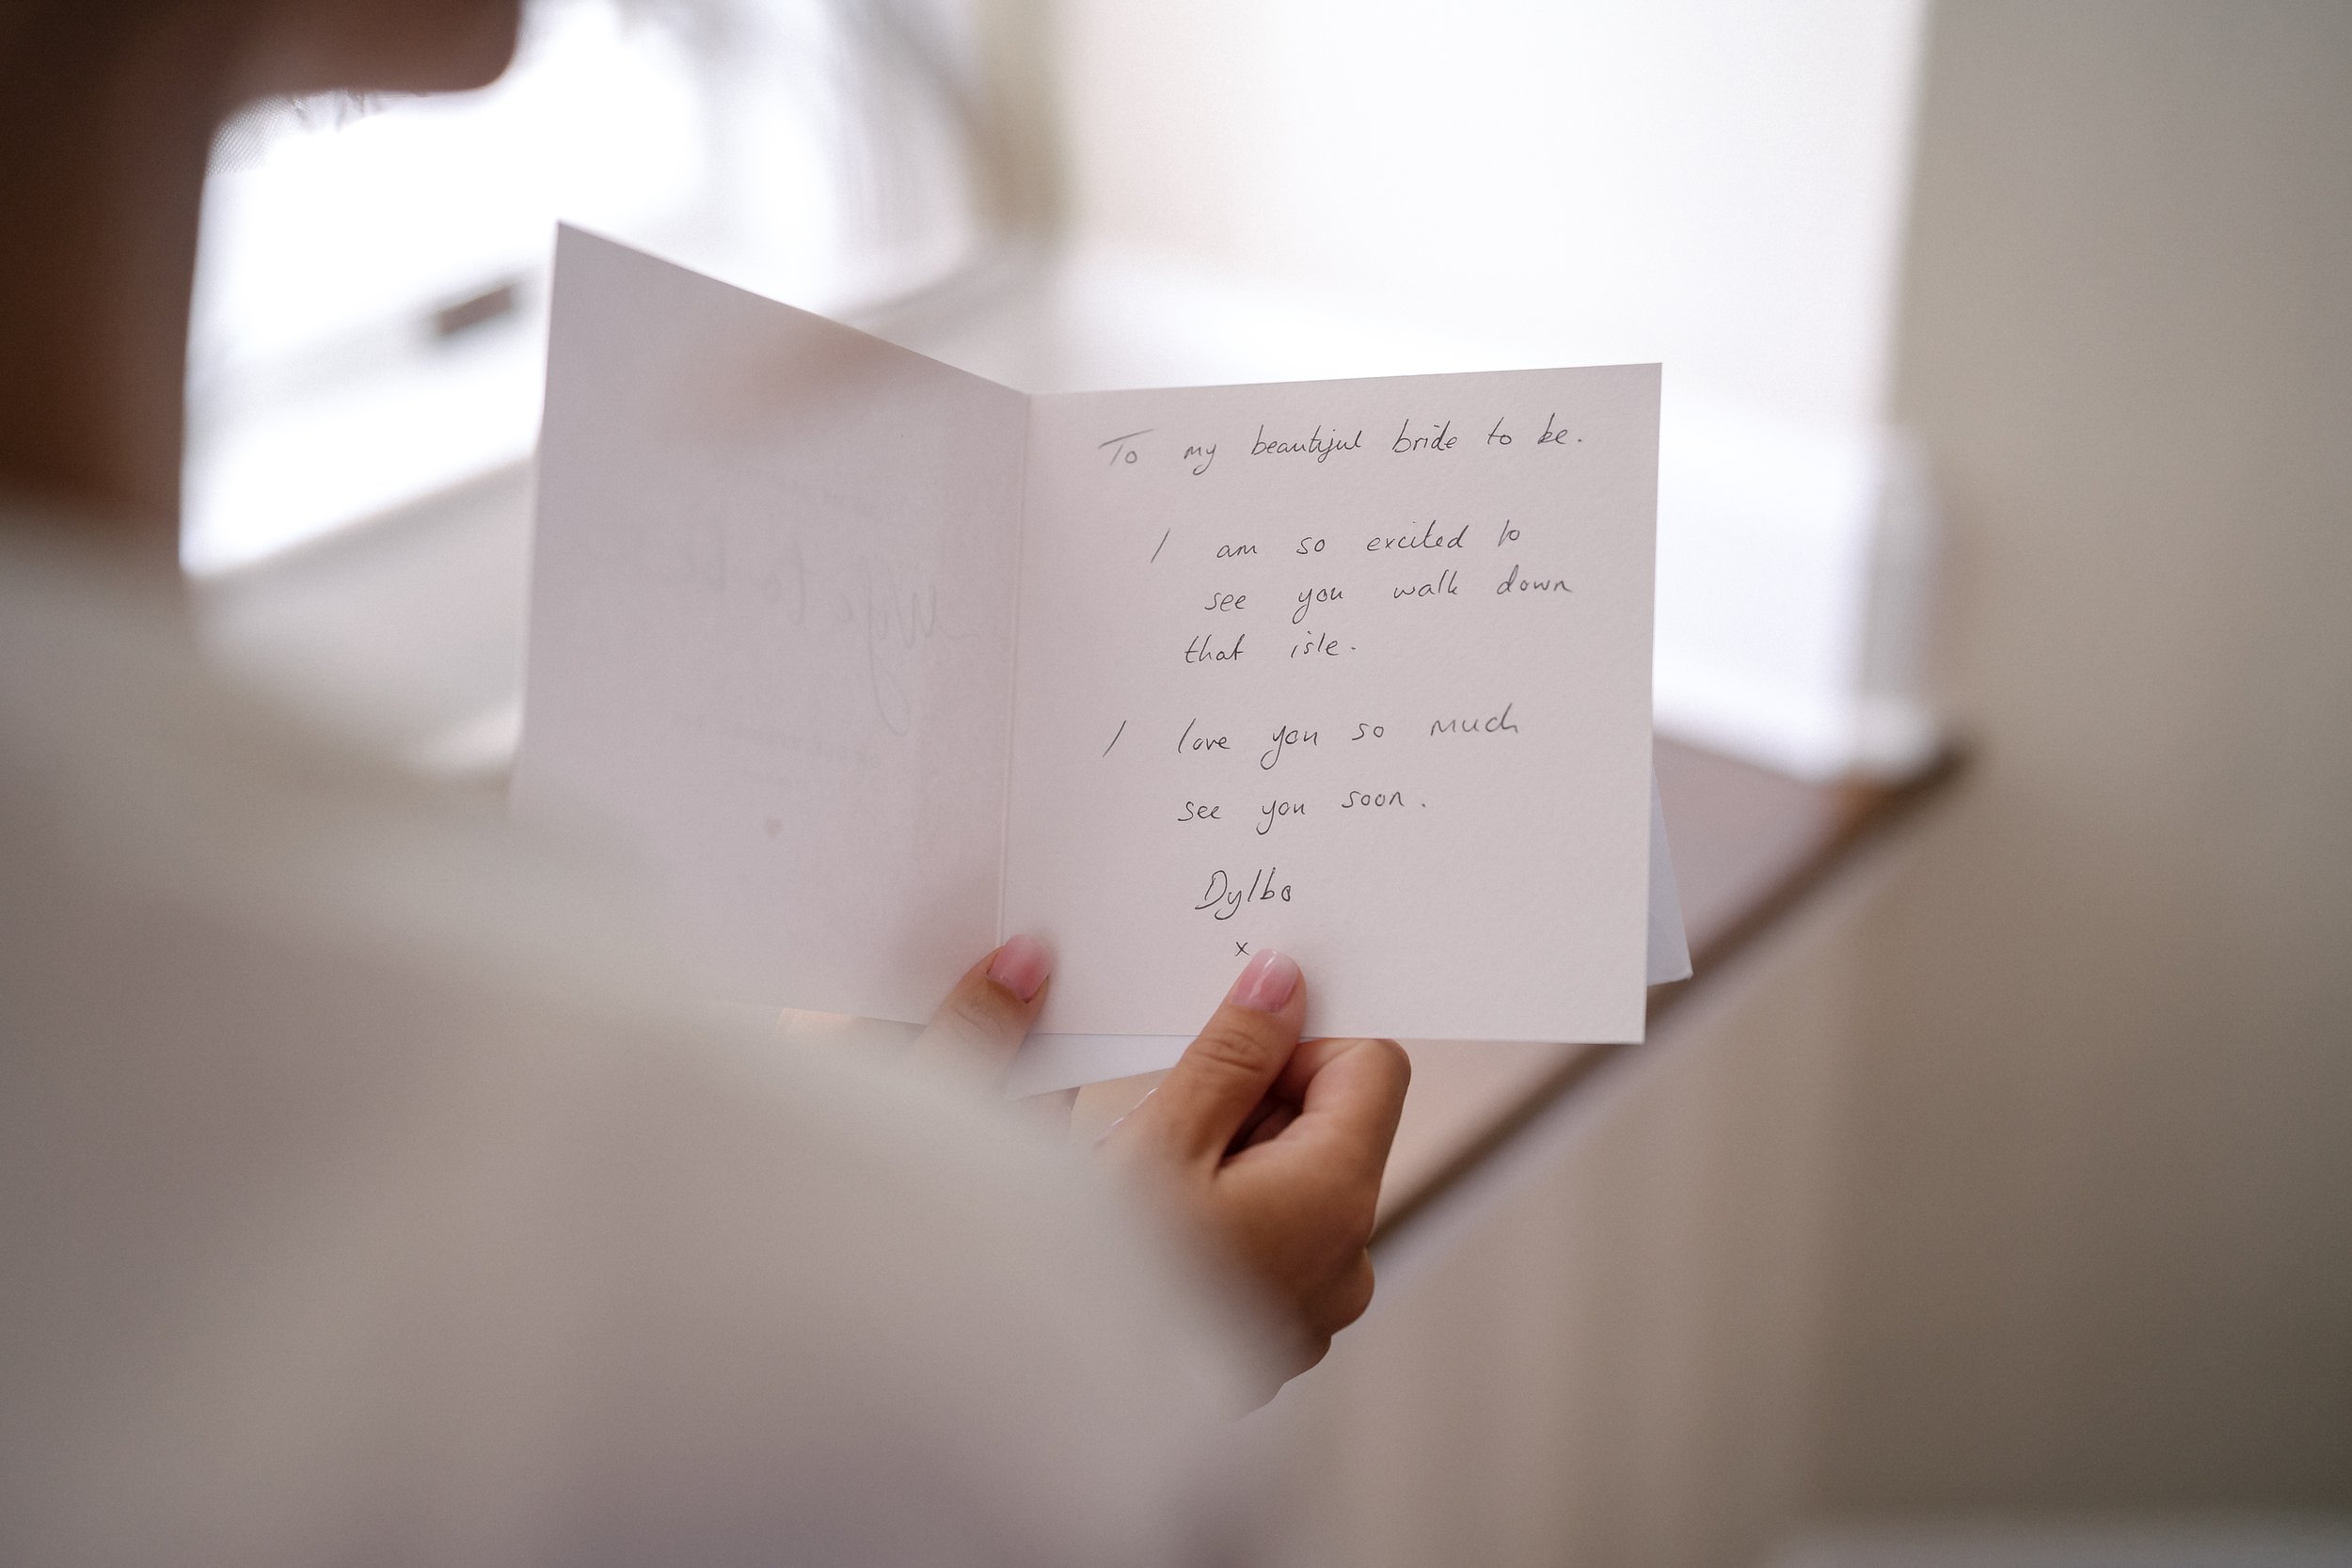 To my beautiful bride to be.
I am so excited to
see you walk down
that isle.
I love you so much
see you soon.
Dylbo
x